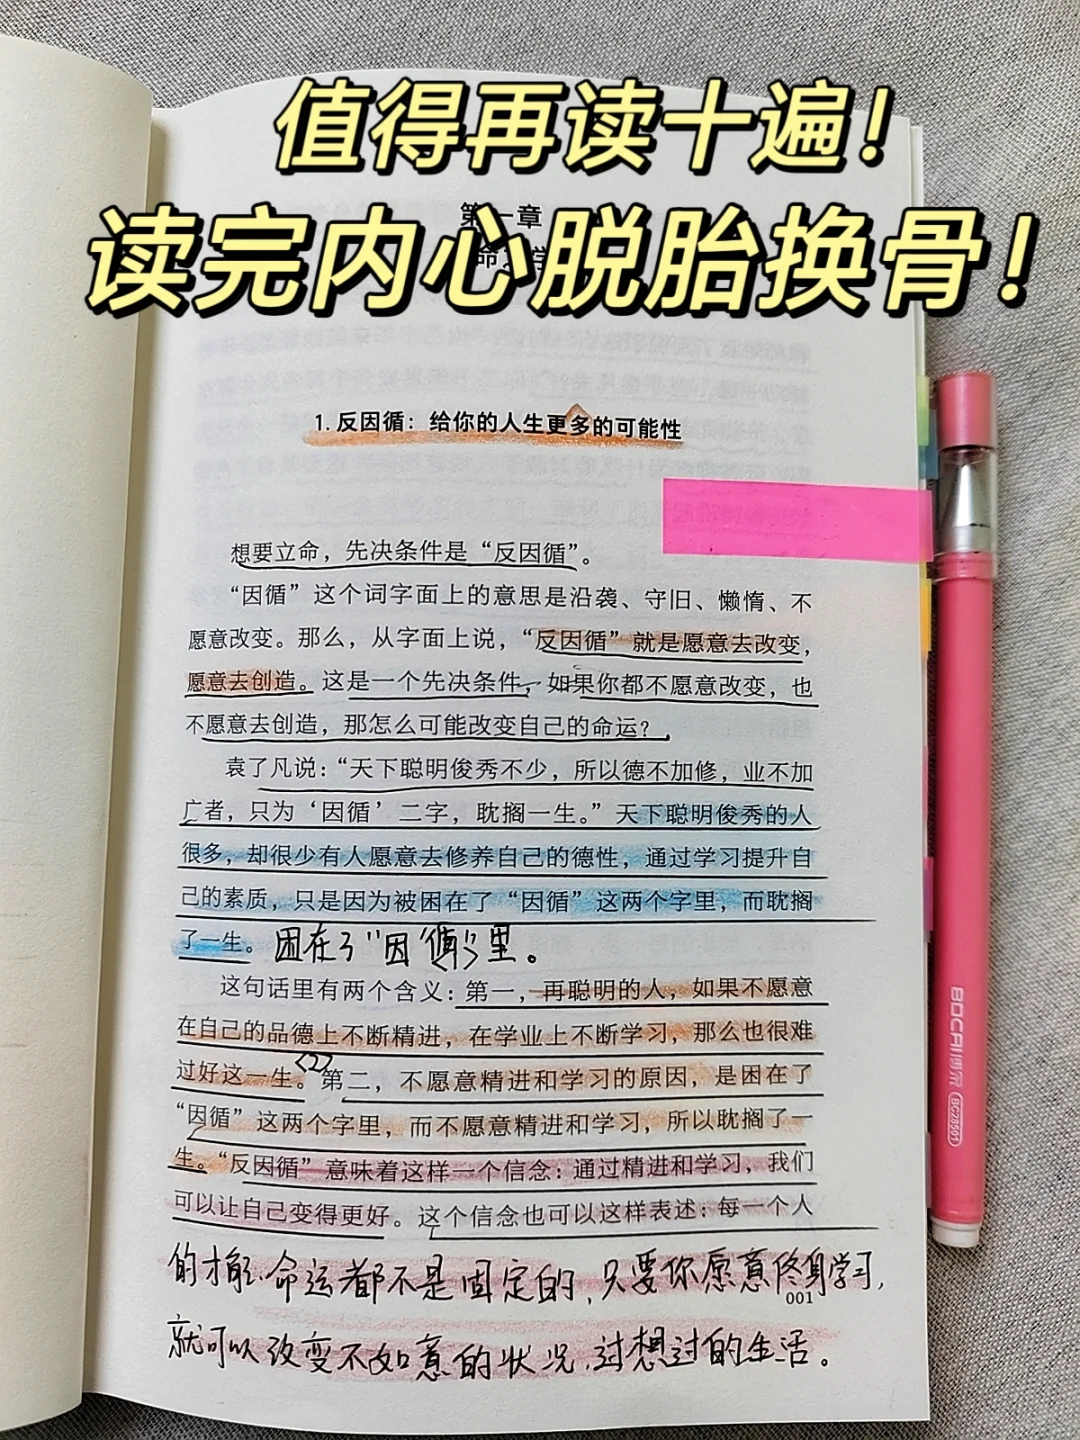 值得再读十遍！
第一章
读完内心脱胎换骨！
1. 反因循：给你的人生更多的可能性
想要立命，先决条件是“反因循”。
“因循”这个词字面上的意思是沿袭、守旧、懒惰、不
愿意改变。那么，从字面上说，“反因循”就是愿意去改变，
愿意去创造。这是一个先决条件，如果你都不愿意改变，也
不愿意去创造，那怎么可能改变自己的命运？
袁了凡说：“天下聪明俊秀不少，所以德不加修，业不加
广者，只为‘因循’二字，耽搁一生。”天下聪明俊秀的人
很多，却很少有人愿意去修养自己的德性，通过学习提升自
己的素质，只是因为被困在了“因循”这两个字里，而耽搁
了一生。困在了“因循”里。
这句话里有两个含义：第一，再聪明的人，如果不愿意
在自己的品德上不断精进，在学业上不断学习，那么也很难
过好这一生。<2>第二，不愿意精进和学习的原因，是困在了
“因循”这两个字里，而不愿意精进和学习，所以耽搁了一
生。“反因循”意味着这样一个信念：通过精进和学习，我们
可以让自己变得更好。这个信念也可以这样表述：每一个人
的才能、命运都不是固定的，只要你愿意终身学习，
001
就可以改变不如意的状况，过想过的生活。
BOCAI博采
BC28501